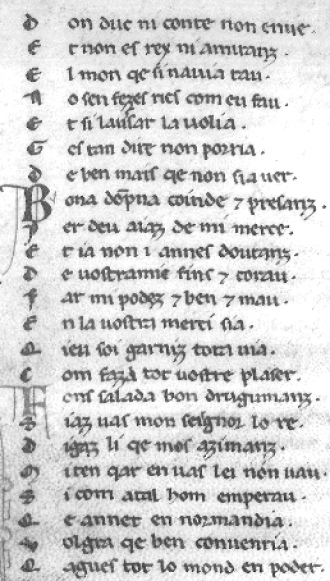 D on duc ni conte non enue.
E t non es rey ni amiranz.
E l mon qe si nauia tau.
N o sen fezes ries com eu fau.
E t si lausar la uolia.
G es tan dire non porria.
D e ben mais qe non sia uer.
B ona dōpna coinde ⁊ presanz.
P er deu aiaz de mi merce.
E t ia non i annes doutanz.
D e uostramie fins ⁊ corau.
F ar mi podez ⁊ ben ⁊ mau.
E n la uostra merci sia.
Q ieu soi garniz tota uia.
C om faza tot uostre plaser.
F ons salada bon drugumanz.
S iaz uas mon seignor lo re.
D igaz li qe mos azimanz.
M i ten qar en uas lei non uau.
S i com atal hom emperau.
Q e annet en normandia.
V olgra qe ben conuenria.
Q agues tot lo mond en poder.